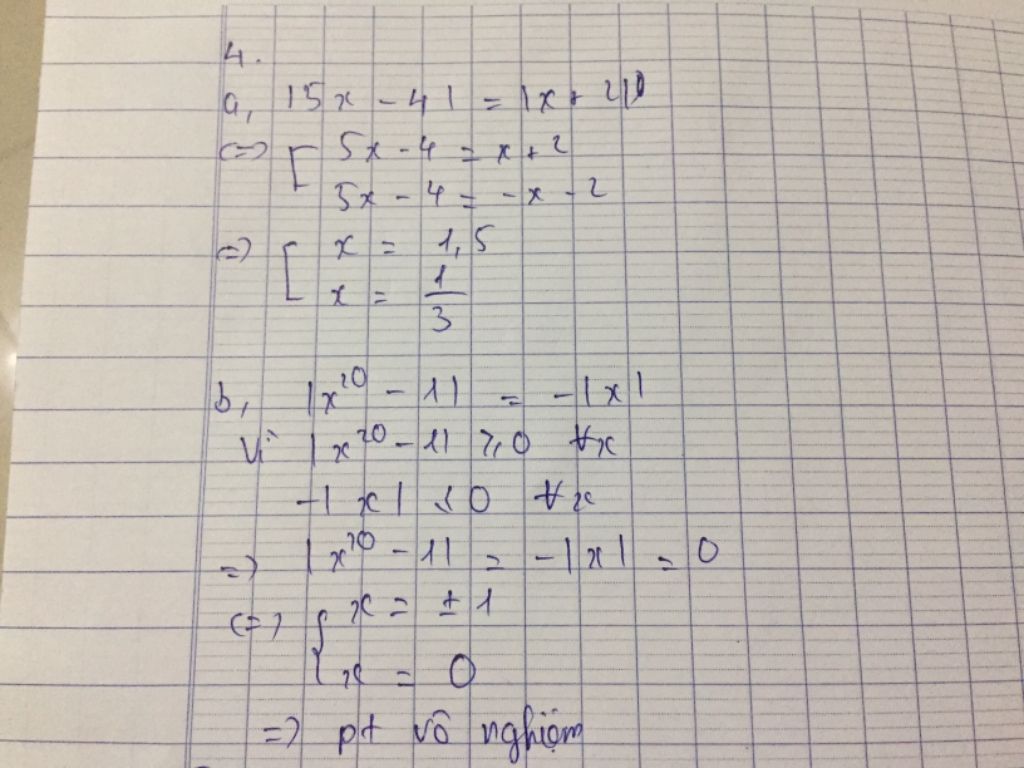 4.
a, |5x - 4| = |x + 2|
<=> [ 5x - 4 = x + 2
5x - 4 = -x - 2
=> [ x = 1,5
x = 1/3
b, |x²⁰ - 1| = -|x|
Vì |x²⁰ - 1| ≥ 0 ∀x
-|x| ≤ 0 ∀x
=> |x²⁰ - 1| = -|x| = 0
<=> { x = ± 1
x = 0
=> pt vô nghiệm